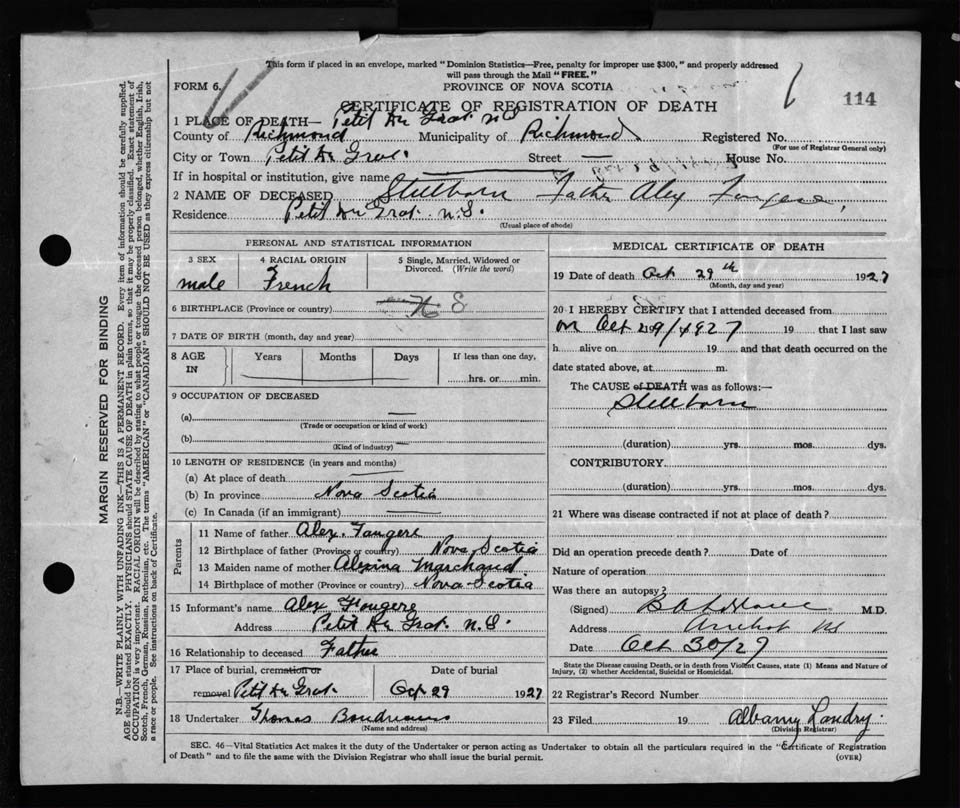 This form if placed in an envelope, marked "Dominion Statistics—Free, penalty for improper use $300," and properly addressed
will pass through the Mail "FREE."
FORM 6.
PROVINCE OF NOVA SCOTIA
CERTIFICATE OF REGISTRATION OF DEATH
114
1 PLACE OF DEATH— Petit De Grat N S
County of Richmond Municipality of Richmond Registered No.
(For use of Registrar General only)
City or Town Petit De Grat Street — House No.
If in hospital or institution, give name
2 NAME OF DECEASED Stillborn Father Alex Fougere
Residence Petit De Grat N.S.
(Usual place of abode)
PERSONAL AND STATISTICAL INFORMATION
3 SEX 4 RACIAL ORIGIN 5 Single, Married, Widowed or Divorced. (Write the word)
male French
6 BIRTHPLACE (Province or country) N S
7 DATE OF BIRTH (month, day and year)
8 AGE IN Years Months Days If less than one day,
hrs. or min.
9 OCCUPATION OF DECEASED
(a) —
(Trade or occupation or kind of work)
(b) —
(Kind of industry)
10 LENGTH OF RESIDENCE (in years and months)
(a) At place of death
(b) In province Nova Scotia
(c) In Canada (if an immigrant)
Parents
11 Name of father Alex. Fougere
12 Birthplace of father (Province or country) Nova Scotia
13 Maiden name of mother Marchand
14 Birthplace of mother (Province or country) Nova Scotia
15 Informant's name Alex Fougere
Address Petit De Grat N.S.
16 Relationship to deceased Father
17 Place of burial, cremation or removal Petit De Grat Date of burial Oct 29 1927
18 Undertaker Thomas Boudreau
(Name and address)
MEDICAL CERTIFICATE OF DEATH
19 Date of death Oct 29th 1927
(Month, day and year)
20 I HEREBY CERTIFY that I attended deceased from
on Oct 29/1927 19 that I last saw
h alive on 19 and that death occurred on the
date stated above, at m.
The CAUSE of DEATH was as follows:—
Stillborn
(duration) yrs. mos. dys.
CONTRIBUTORY
(duration) yrs. mos. dys.
21 Where was disease contracted if not at place of death?
Did an operation precede death? Date of
Nature of operation
Was there an autopsy?
(Signed) M.D.
Address Arichat NS
Date Oct 30/27
State the Disease causing Death, or in death from Violent Causes, state (1) Means and Nature of
Injury, (2) whether Accidental, Suicidal or Homicidal.
22 Registrar's Record Number
23 Filed 19 Albany Landry
(Division Registrar)
SEC. 46—Vital Statistics Act makes it the duty of the Undertaker or person acting as Undertaker to obtain all the particulars required in the "Certificate of Registration
of Death" and to file the same with the Division Registrar who shall issue the burial permit.
(OVER)
MARGIN RESERVED FOR BINDING
N.B.—WRITE PLAINLY WITH UNFADING INK—THIS IS A PERMANENT RECORD. Every item of information should be carefully supplied.
AGE should be stated EXACTLY. PHYSICIANS should STATE CAUSE OF DEATH in plain terms, so that it may be properly classified. Exact statement of
OCCUPATION is very important. RACIAL ORIGIN will be described by stating to what people or tongue the deceased person belonged, whether English, Irish,
Scotch, French, German, Russian, Ruthenian, etc. The terms "AMERICAN" or "CANADIAN" SHOULD NOT BE USED as they express citizenship but not
a race or people. See instructions on back of Certificate.